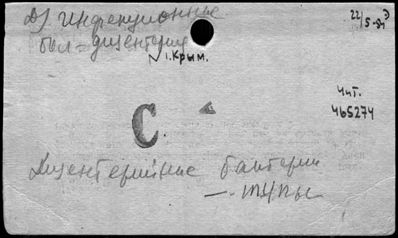 Д) Инфекционные
бол = дизентерия
г. Крым.
22/5-84
Чит.
465274
С
Дизентерийные бактерии
—. типы